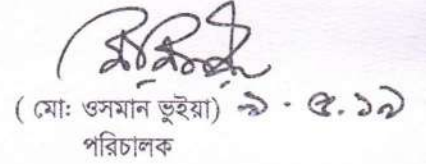 ( মোঃ ওসমান ভূইয়া) ৯.৫.১৯
পরিচালক